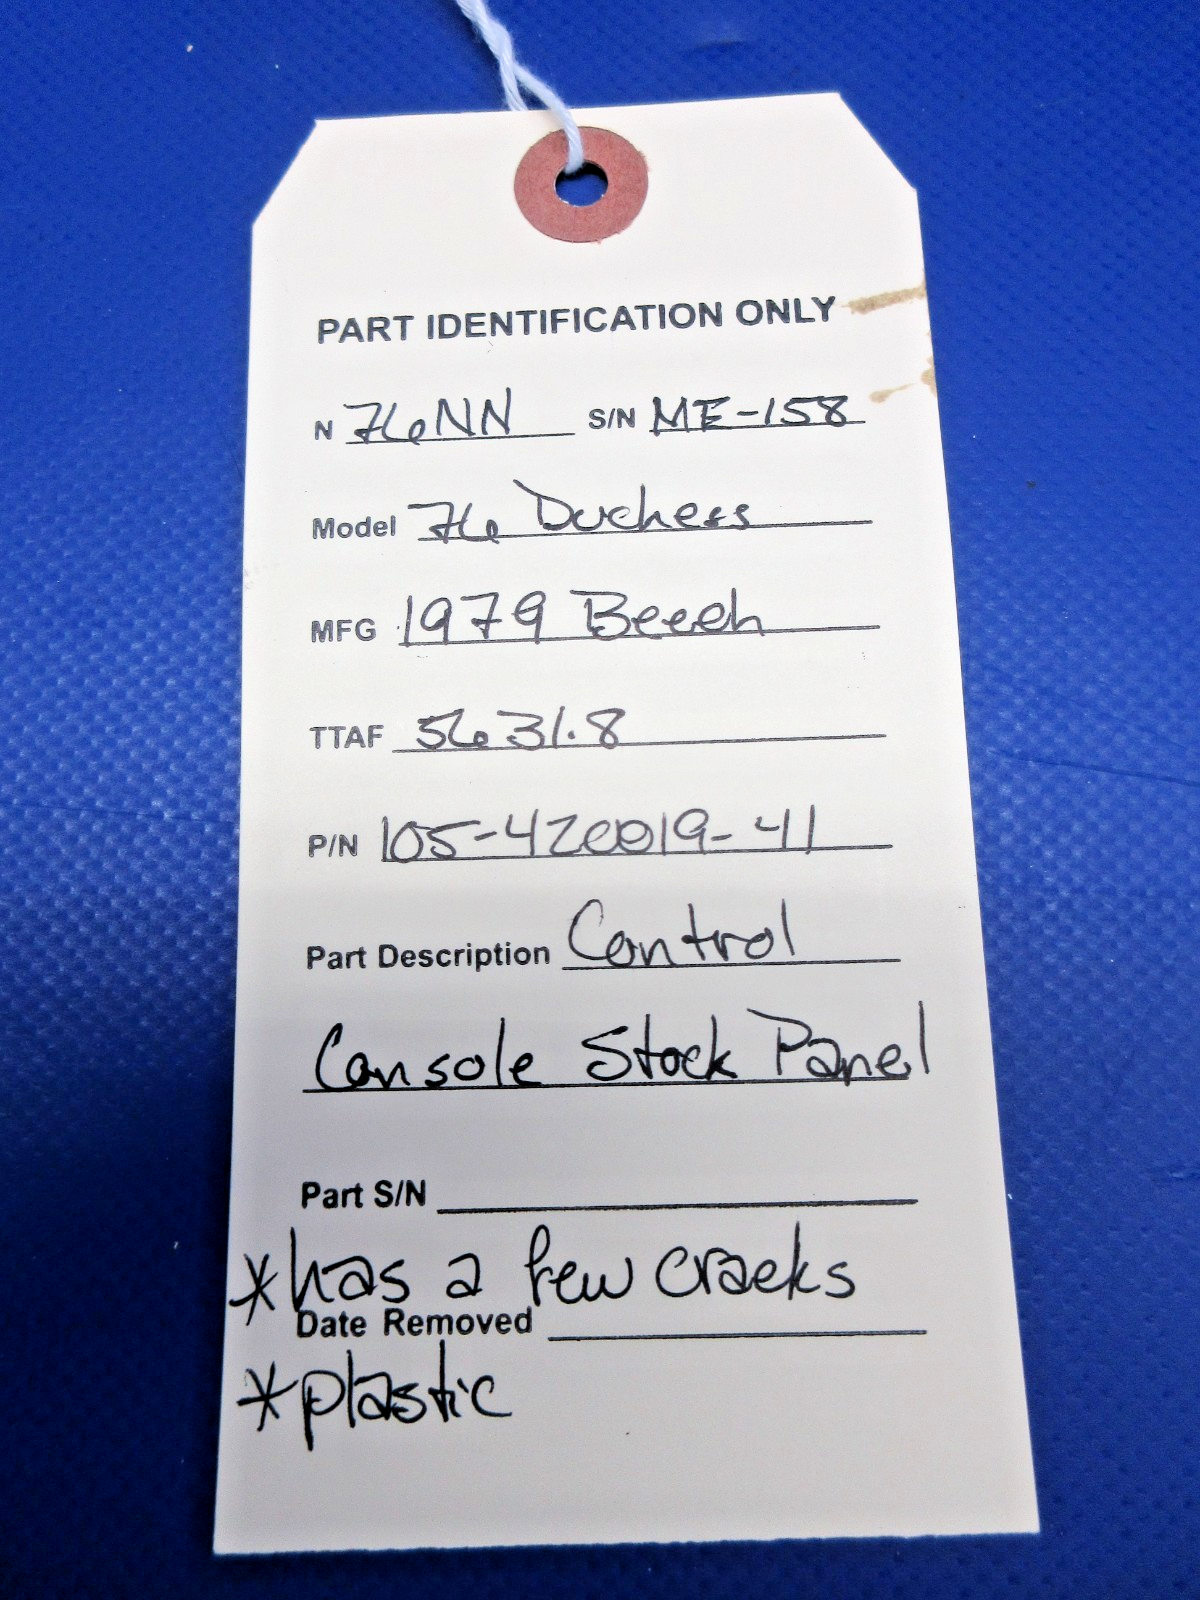 PART IDENTIFICATION ONLY
N 76NN S/N ME-158
Model 76 Duchess
MFG 1979 Beech
TTAF 5631.8
P/N 105-420019-41
Part Description Control
Console Stock Panel
Part S/N
*has a few cracks
Date Removed
*plastic